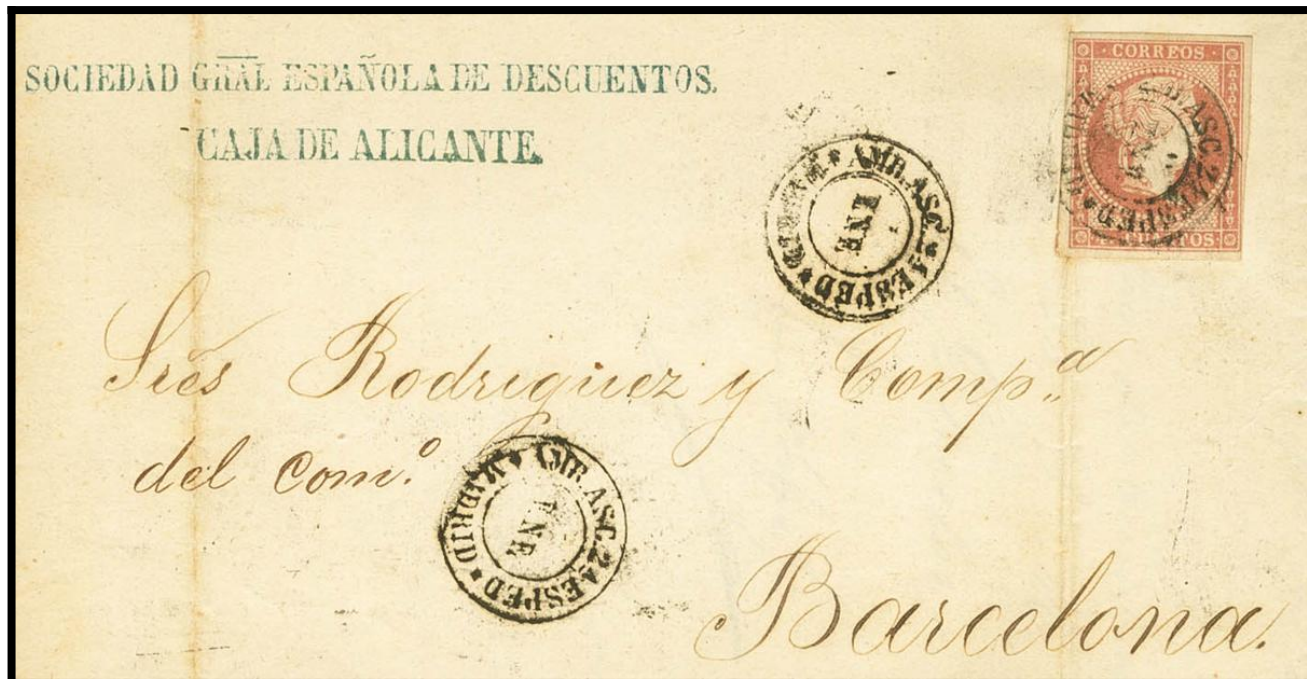 SOCIEDAD GRAL ESPAÑOLA DE DESCUENTOS.
CAJA DE ALICANTE.
CORREOS
CUARTOS
ASC. 2A ESPED
MADRID * AMB. ASC. 2A ESPED *
ENE
Sres Rodriguez y Comp.ª
del Com.º
MADRID * AMB. ASC. 2A ESPED *
ENE
Barcelona.